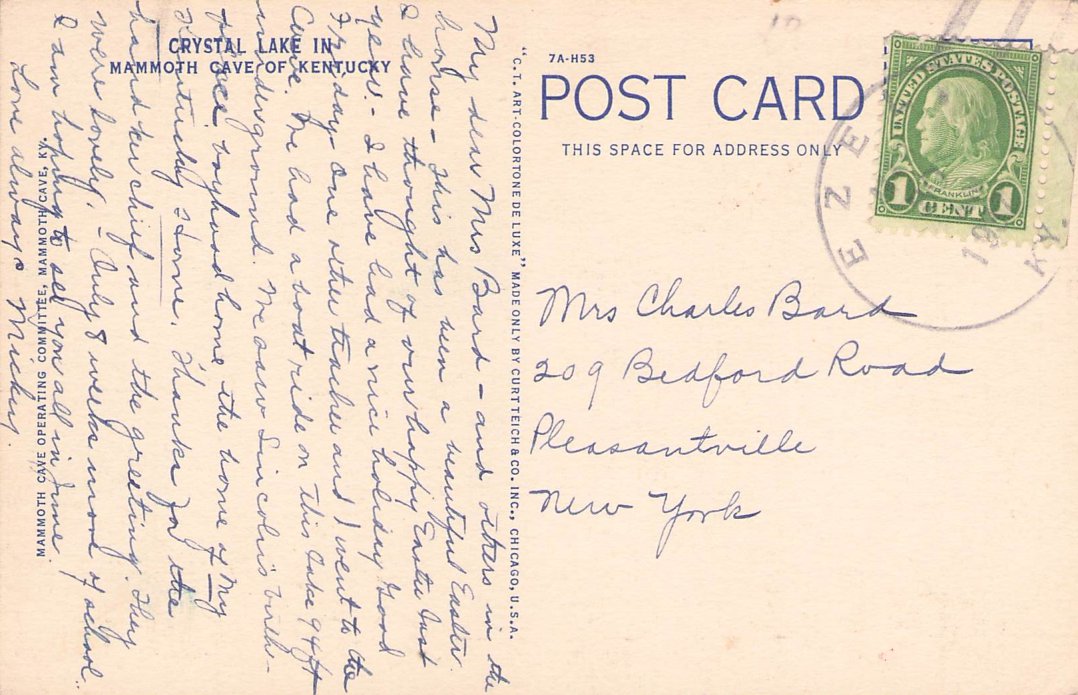 CRYSTAL LAKE IN
MAMMOTH CAVE OF KENTUCKY
My dear Mrs Bard - and others in the
house - This has been a beautiful Easter.
I have thought of our happy Easter last
year - I have had a nice holiday Good
Friday - One other teacher and I went to the
Cave. We had a boat ride on this lake 94 ft
underground. We saw Lincoln's birth-
place, boyhood home the home of My
Kentucky Home. Thanks for the
handkerchief and the greeting. They
were lovely. - Only 8 weeks more of school.
I am hoping to see you all in June.
Love always Micky.
MAMMOTH CAVE OPERATING COMMITTEE, MAMMOTH CAVE, KY.
"C.T. ART-COLORTONE DE LUXE" MADE ONLY BY CURT TEICH & CO. INC., CHICAGO, U.S.A.
7A-H53
POST CARD
THIS SPACE FOR ADDRESS ONLY
UNITED STATES POSTAGE
FRANKLIN
1 CENT 1
EZEL
KY.
Mrs Charles Bard
209 Bedford Road
Pleasantville
New York